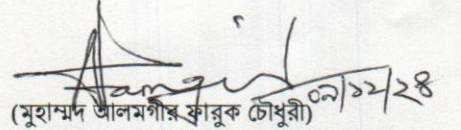 ০৯/১২/২৪
(মুহাম্মদ আলমগীর ফারুক চৌধুরী)